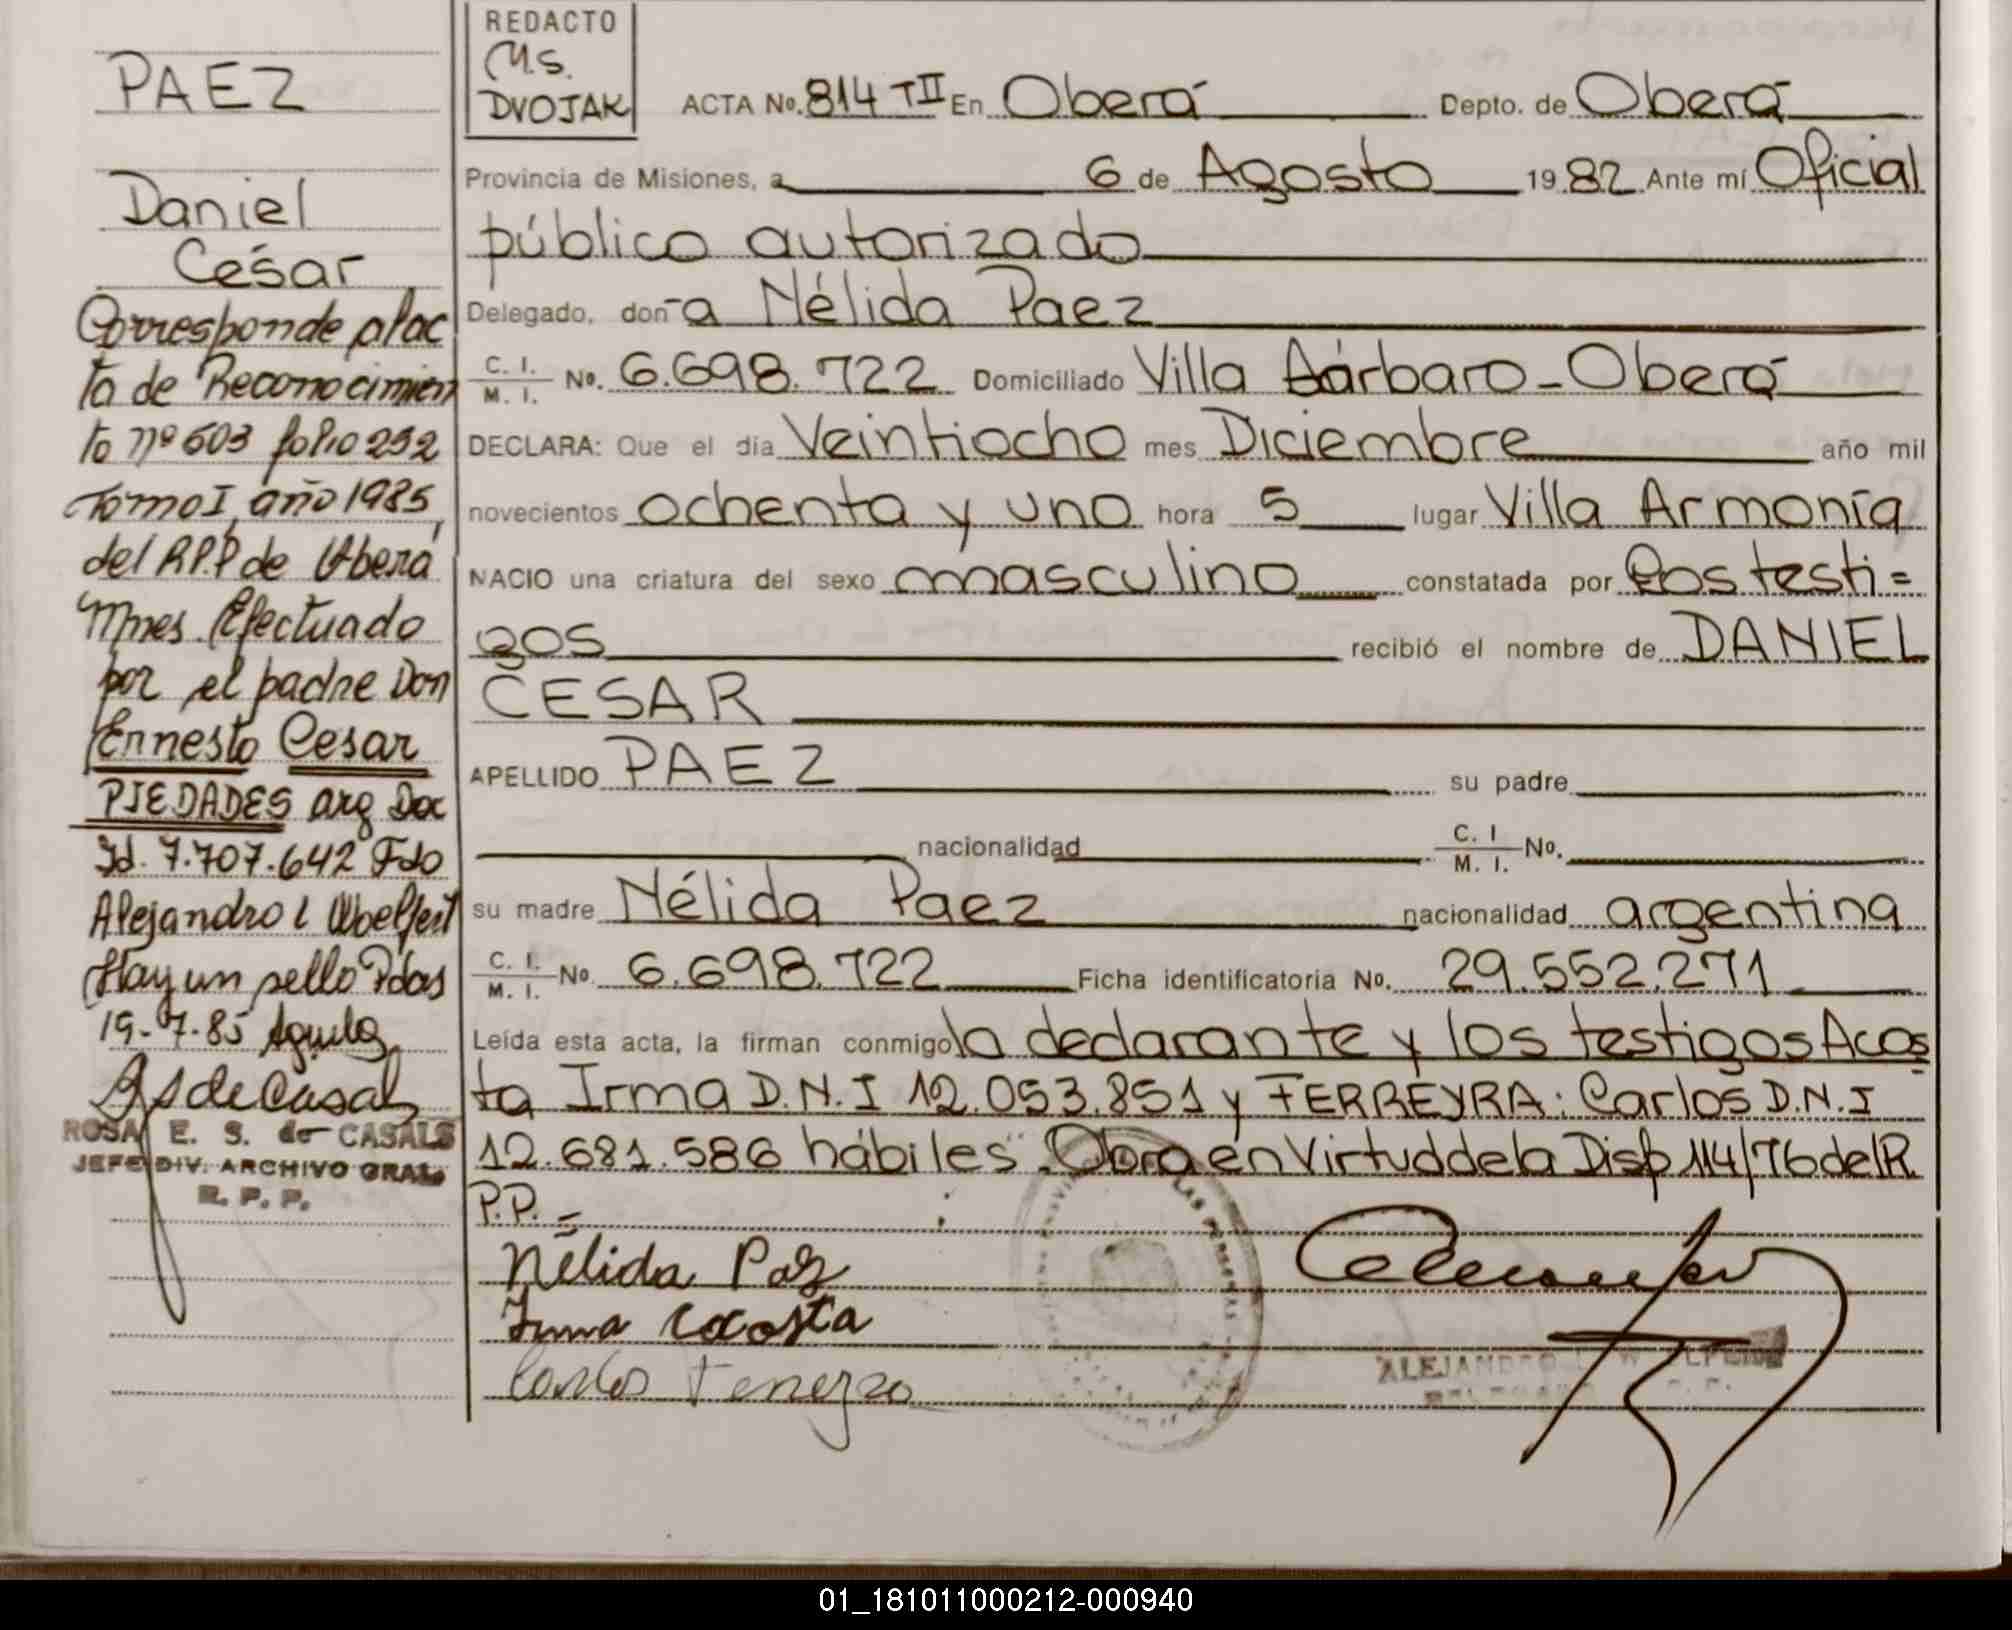 PAEZ
Daniel
César
Corresponde al ac
ta de Reconocimien
to nº 603 folio 292
Tomo I, año 1985,
del R.P.P de Oberá
Mnes. Efectuado
por el padre Don
Ernesto Cesar
PIEDADES arg Doc
Id. 7.707.642 Fdo
Alejandro L Woelfert
Hay un sello Pdas
19-7-85 Aguila
RS de Casals
ROSA E. S. de CASALS
JEFE DIV. ARCHIVO GRAL.
R. P. P.
REDACTO
M.S.
DVOJAK
ACTA No. 814 TII En Oberá Depto. de Oberá
Provincia de Misiones, a 6 de Agosto 1982 Ante mí Oficial
público autorizado
Delegado, don-a Nélida Paez
C. I. / M. I. No. 6.698.722 Domiciliado Villa Bárbaro - Oberá
DECLARA: Que el día Veintiocho mes Diciembre año mil
novecientos ochenta y uno hora 5 lugar Villa Armonía
NACIO una criatura del sexo masculino constatada por Los testi=
gos recibió el nombre de DANIEL
CESAR
APELLIDO PAEZ su padre
nacionalidad C. I / M. I. No.
su madre Nélida Paez nacionalidad argentina
C. I. / M. I. No. 6.698.722 Ficha identificatoria No. 29.552.271
Leída esta acta, la firman conmigo la declarante y los testigos Acos
ta Irma D.N.I 12.053.851 y FERREYRA: Carlos D.N.I
12.681.586 hábiles. Obra en Virtud de la Disp 114/76 del R.
P.P. -
Nélida Paz
Irma Acosta
Carlos Ferreyra
ALEJANDRO L. W
01_181011000212-000940